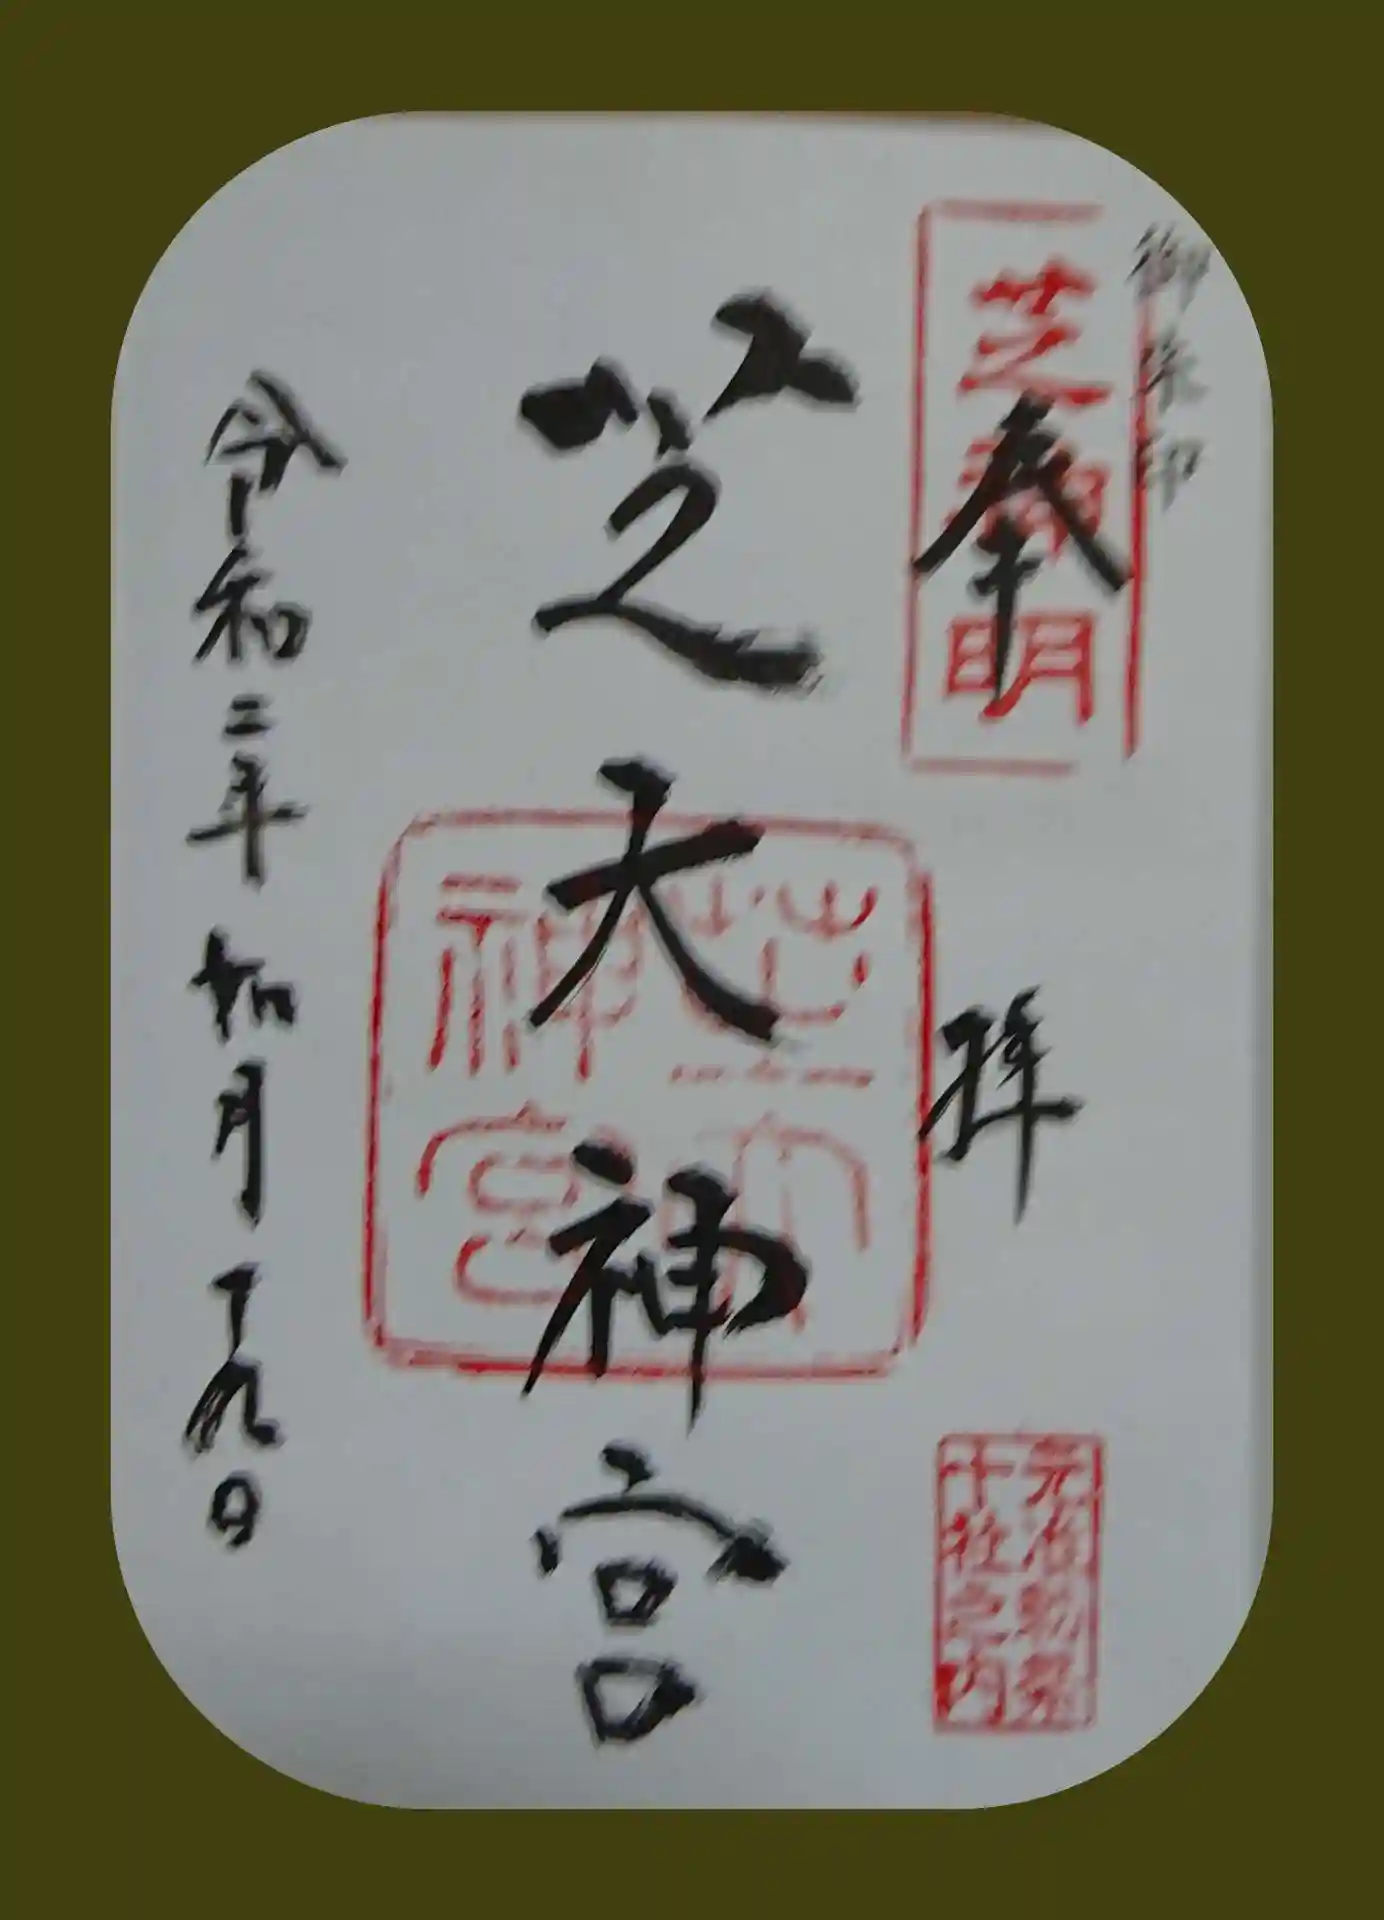 御朱印
奉拝
芝神明
元治勅祭
十社之内
芝大神宮
芝大
神宮
令和二年如月十九日